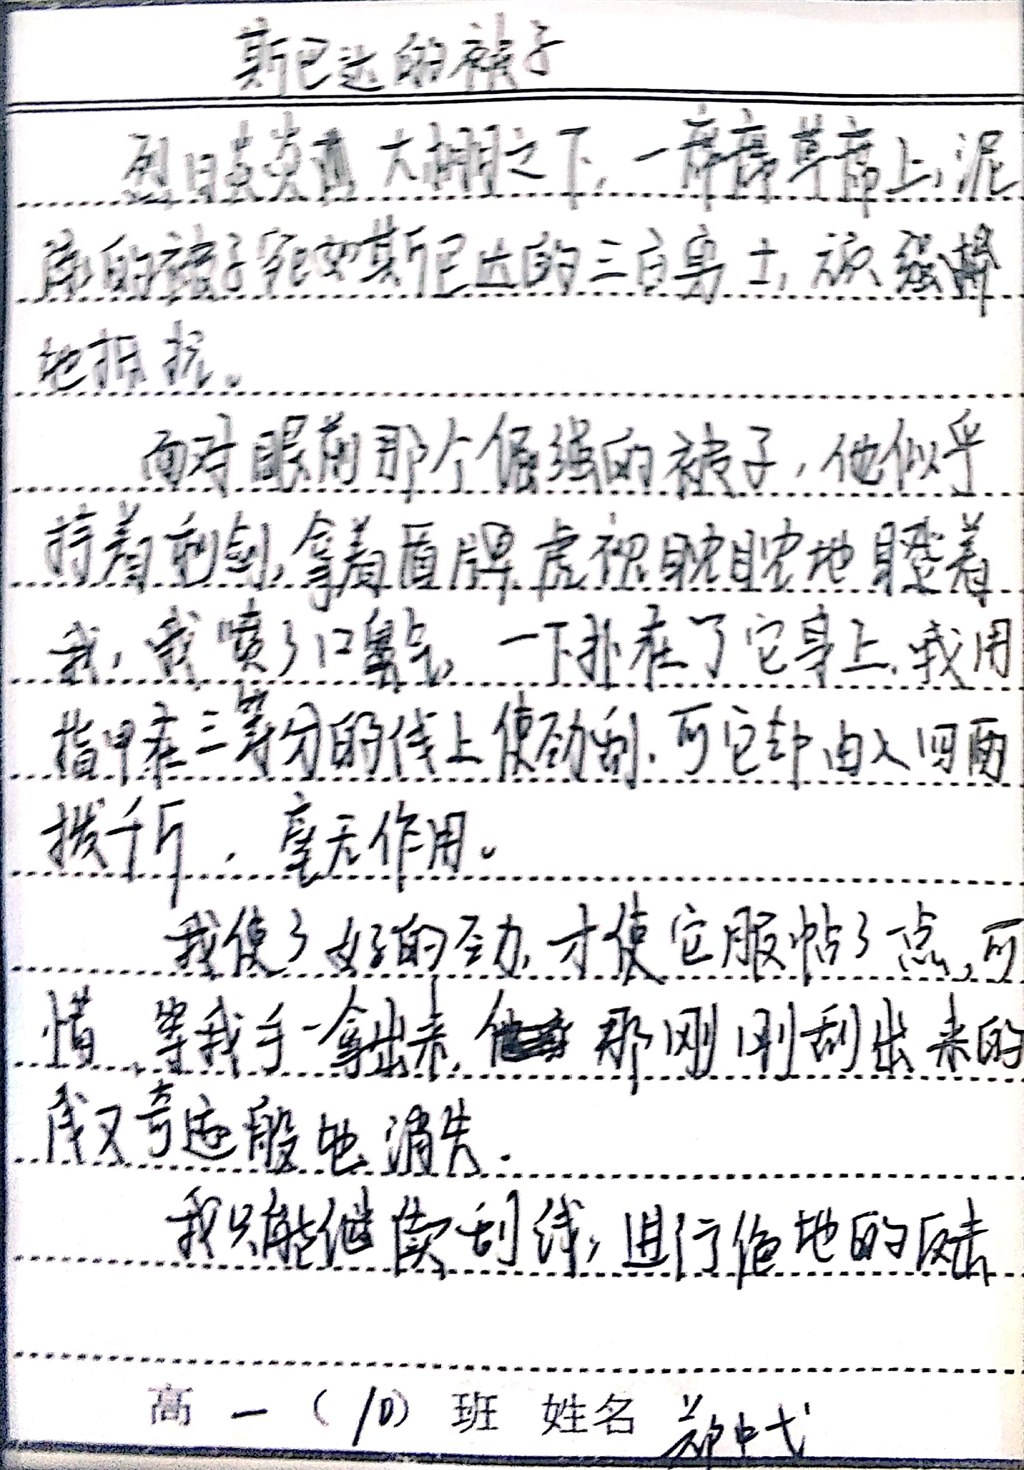 斯巴达的被子
烈日炎炎 大棚之下，一席席草席上，泥
的被子宛如斯巴达的三百勇士，顽强
地抵抗。
面对眼前那个倔强的被子，他似乎
持着利剑，拿着盾牌，虎视眈眈地瞪着
我，我喷了口鼻气，一下扑在了它身上，我用
指甲在三等分的线上使劲刮，可它却由人四两
拨千斤，毫无作用。
我使了好的劲，才使它服帖了点，可
惜，等我手一拿出来，那刚刚刮出来的
线又奇迹般地消失．
我只能继续刮线，进行绝地的反击
高一（10）班 姓名 郑中